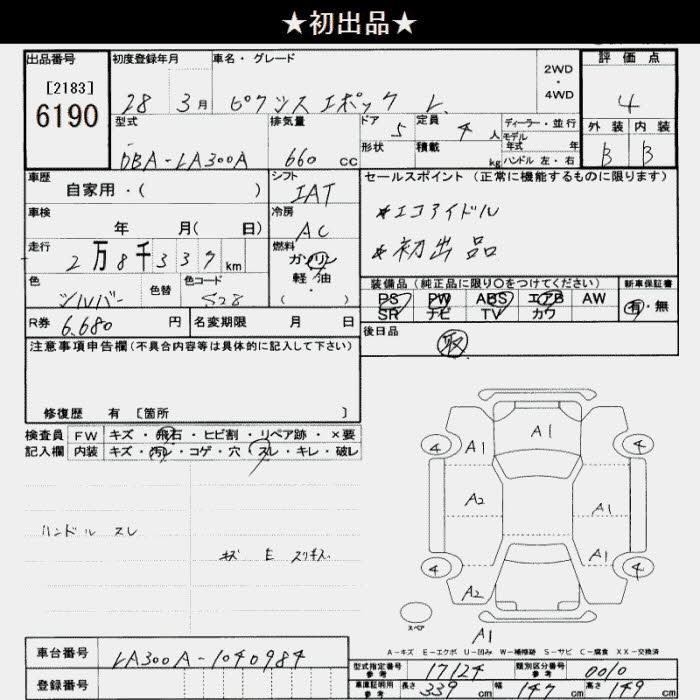 ★初出品★
出品番号 初度登録年月 車名・グレード 2WD・4WD 評価点
[2183]
6190
28 3月 ピクシス エポック L 4
型式 排気量 ドア 5 定員 4人 ディーラー・並行 外装 内装
DBA-LA300A 660 cc 形状 積載 kg モデル年式 年 ハンドル 左・右 B B
車歴 シフト セールスポイント(正常に機能するものに限ります)
自家用・( ) IAT
車検 冷房 *エコアイドル
年 月( 日) AC *初出品
走行 燃料
2万8千337km ガソリン
色 色替 色コード 軽・油 装備品(純正品に限り○をつけてください) 新車保証書
シルバー S28 ( ・ ) PS PW ABS エアB AW 有・無
SR ナビ TV カワ
R券 6,680 円 名変期限 月 日 後日品
取
注意事項申告欄(不具合内容等は具体的に記入して下さい)
修復歴 有 [箇所 ]
検査員 FW キズ・飛石・ヒビ割・リペア跡・×要
記入欄 内装 キズ・汚レ・コゲ・穴・スレ・キレ・破レ
ハンドル スレ
キズ E スリキズ
A1
A1
4
4
A2
A1
A1
4
4
A2
スペア
A1
A-キズ E-エクボ U-凹み W-補修跡 S-サビ C-腐食 XX-交換済
車台番号 LA300A-1040984
型式指定番号 参考 17124 類別区分番号 参考 0010
登録番号
車庫証明用 参考 長さ 339 cm 幅 147 cm 高さ 149 cm